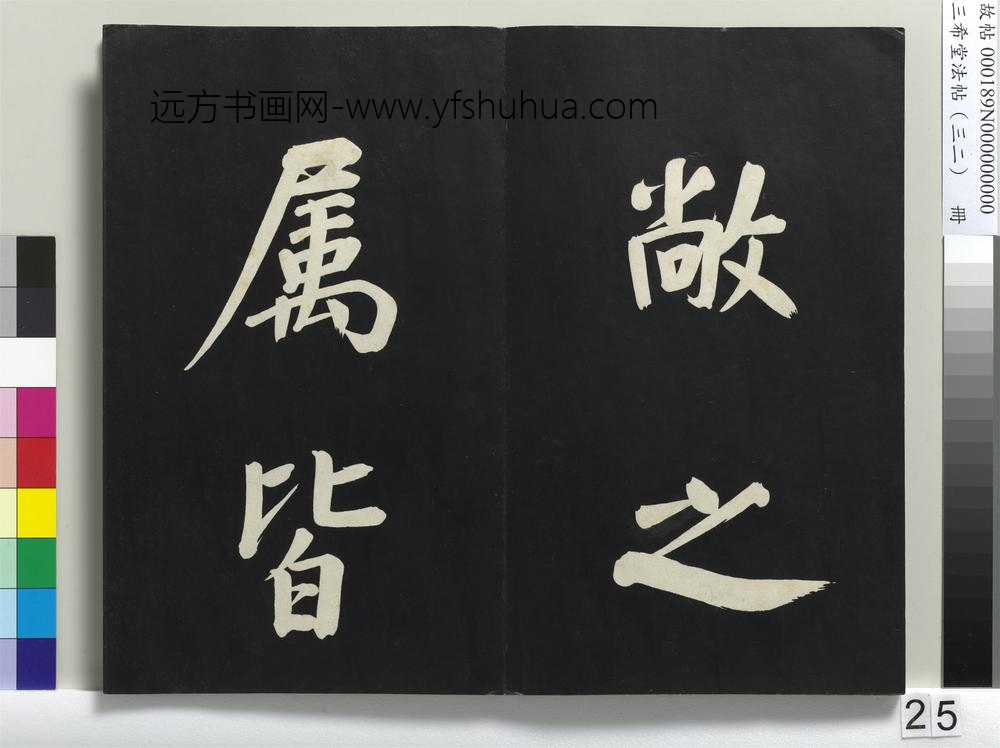 远方书画网-www.yfshuhua.com
敞之
属皆
故帖 000189N000000000
三希堂法帖（三二） 冊
25